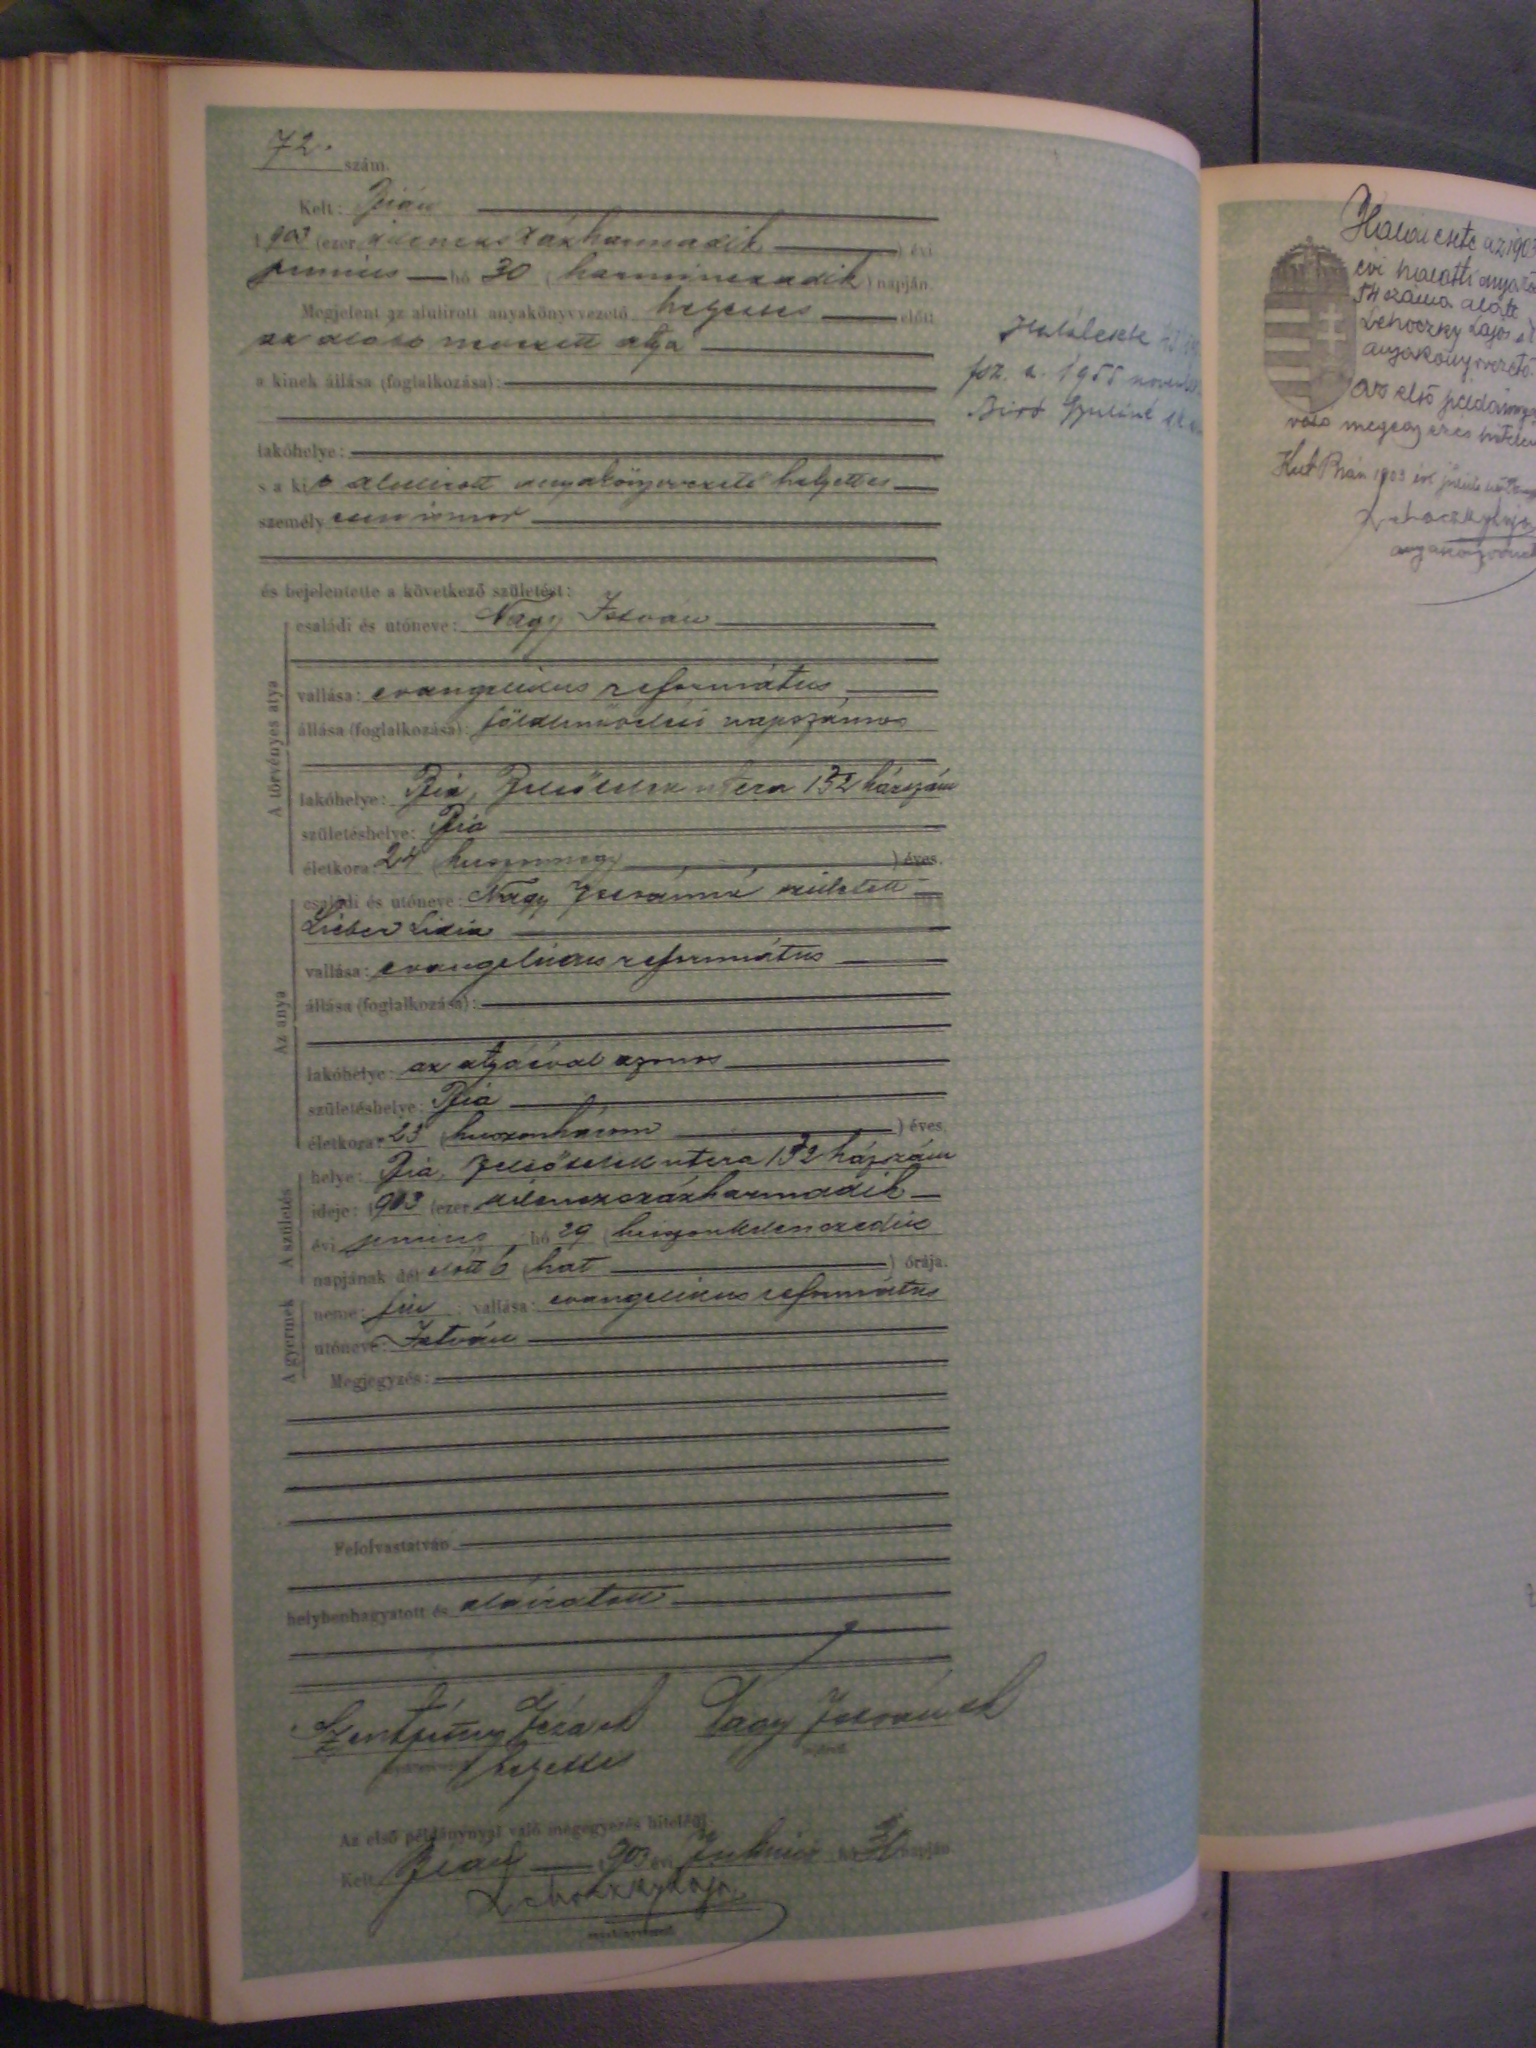 72. szám.
Kelt: Bián
1903 (ezer kilenczszázharmadik) évi
junius hó 30 (harminczadik) napján.
Megjelent az alulirott anyakönyvvezető helyettes előtt
az alább nevezett atya
a kinek állása (foglalkozása):
lakóhelye:
s a kit alulirott anyakönyvvezető helyettes
személyesen ismer
és bejelentette a következő születést:
A törvényes atya
családi és utóneve: Nagy István
vallása: evangelikus református
állása (foglalkozása): földmüvelési napszámos
lakóhelye: Bia, Felsőtelek utcza 132 házszám
születéshelye: Bia
életkora: 24 (huszonnégy) éves.
Az anya
családi és utóneve: Nagy Istvánné született
Lieber Lidia
vallása: evangelikus református
állása (foglalkozása):
lakóhelye: az atyáéval azonos
születéshelye: Bia
életkora: 23 (huszonhárom) éves.
A születés
helye: Bia, Felsőtelek utcza 132 házszám
ideje: 1903 (ezer kilenczszázharmadik
évi junius hó 29 (huszonkilenczedik
napjának dél előtt 6 (hat) órája.
A gyermek
neme: fiu vallása: evangelikus református
utóneve: István
Megjegyzés:
Felolvastatván
helybenhagyatott és aláiratott
Nagy István
helyettes
Az első példánynyal való megegyezés hiteléül.
Kelt Bián 1903 évi Junius hó 30 napján
Lehoczky Lajos
anyakönyvvezető
Haláleset
fsz. a. 1955 november
Biró Gyuláné
Halál esete az 1903
évi halotti
54 száma alatt
Lehoczky Lajos
anyakönyvvezető.
Az első példánnyal
való megegyezés
Kelt Bián 1903 évi
Lehoczky Lajos